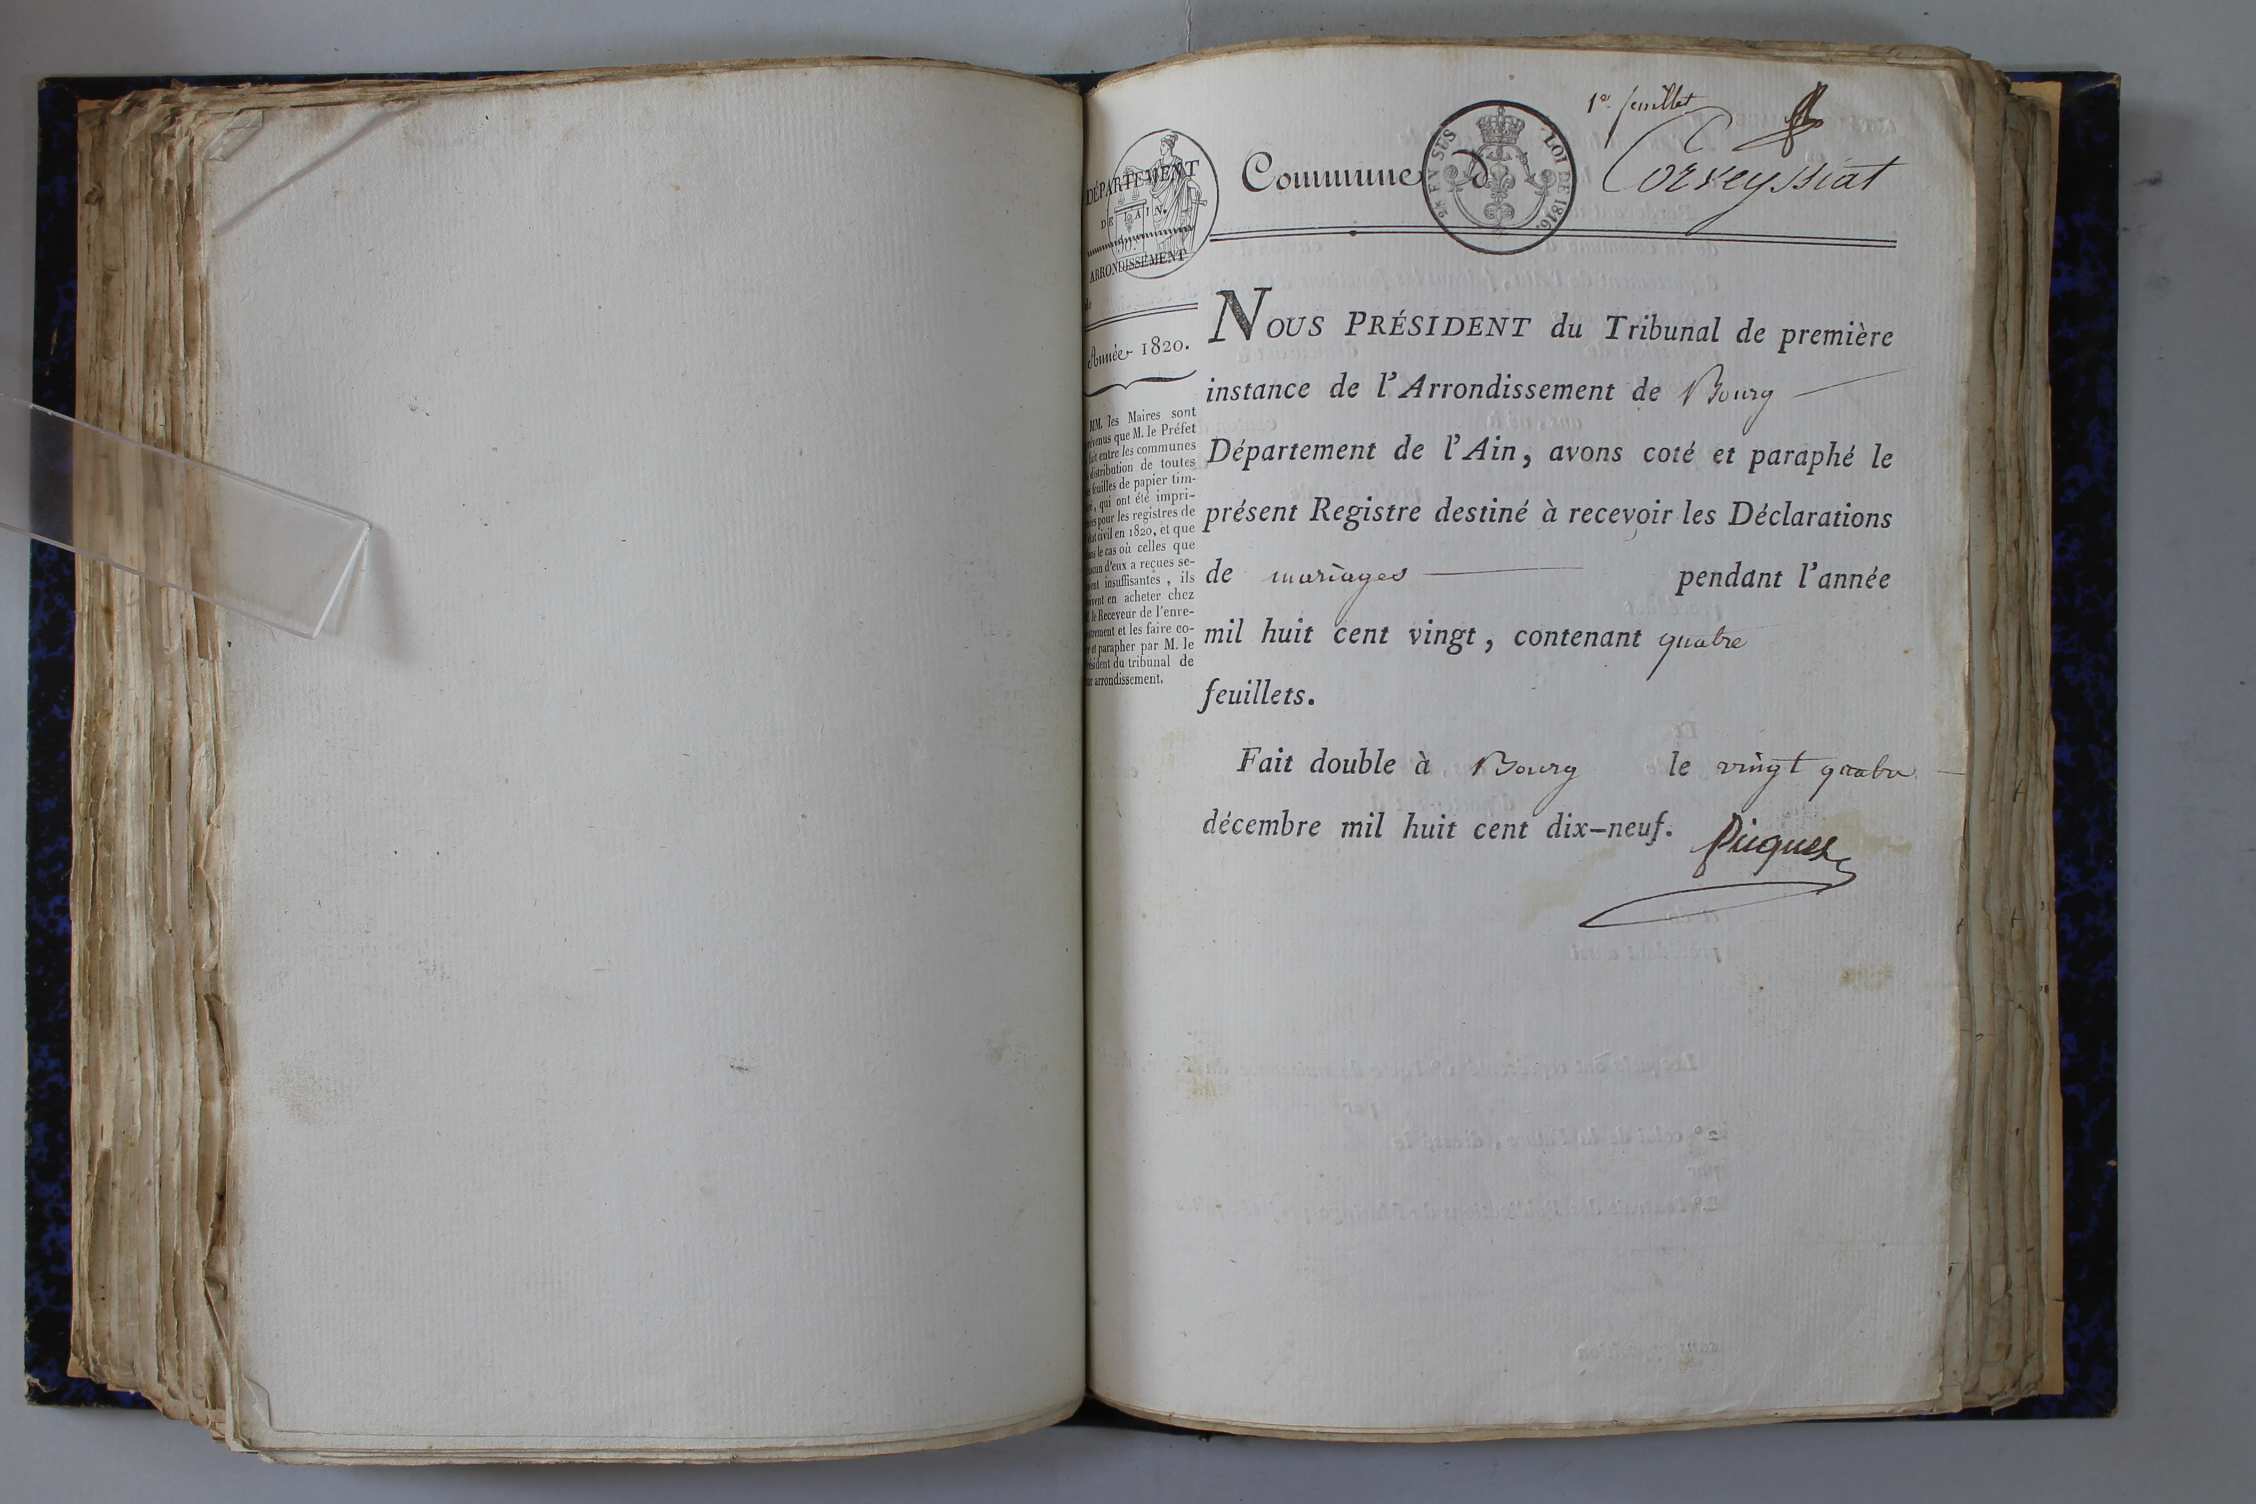 1er feuillet
Commune d Corveyssiat
2e EN SUS
LOI DE 1816.
DÉPARTEMENT
DE L'AIN.
ARRONDISSEMENT
de
Année 1820.
MM. les Maires sont
que M. le Préfet
fait entre les communes
distribution de toutes
feuilles de papier tim-
, qui ont été impri-
pour les registres de
civil en 1820, et que
le cas où celles que
d'eux a reçues se-
insuffisantes, ils
en acheter chez
le Receveur de l'enre-
et les faire co-
et parapher par M. le
du tribunal de
arrondissement.
NOUS PRÉSIDENT du Tribunal de première
instance de l'Arrondissement de Bourg
Département de l'Ain, avons coté et paraphé le
présent Registre destiné à recevoir les Déclarations
de mariages pendant l'année
mil huit cent vingt, contenant quatre
feuillets.
Fait double à Bourg le vingt quatre
décembre mil huit cent dix-neuf.
Picquet